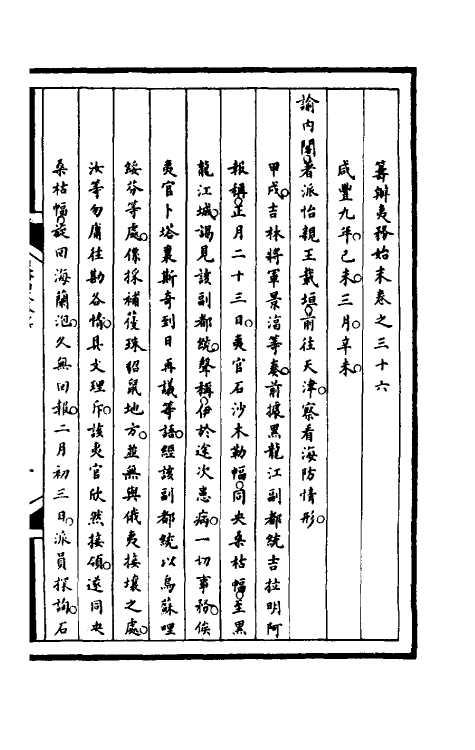 籌辦夷務始末卷之三十六
咸豐九年己未三月辛未
諭內閣著派怡親王載垣前往天津察看海防情形
甲戌吉林將軍景淳等奏前據黑龍江副都統吉拉明阿
報稱正月二十三日夷官石沙木勒幅同夬桑枯幅至黑
龍江城謁見該副都統聲稱伊於途次患病一切事務俟
夷官卜塔裏斯奇到日再議等語經該副都統以烏蘇哩
綏芬等處係採補蔆珠貂鼠地方並無與俄夷接壤之處
汝等勿庸往勘各情具文理斥該夷官欣然接領遂同夬
桑枯幅旋回海蘭泡久無回報二月初三日派員探詢石